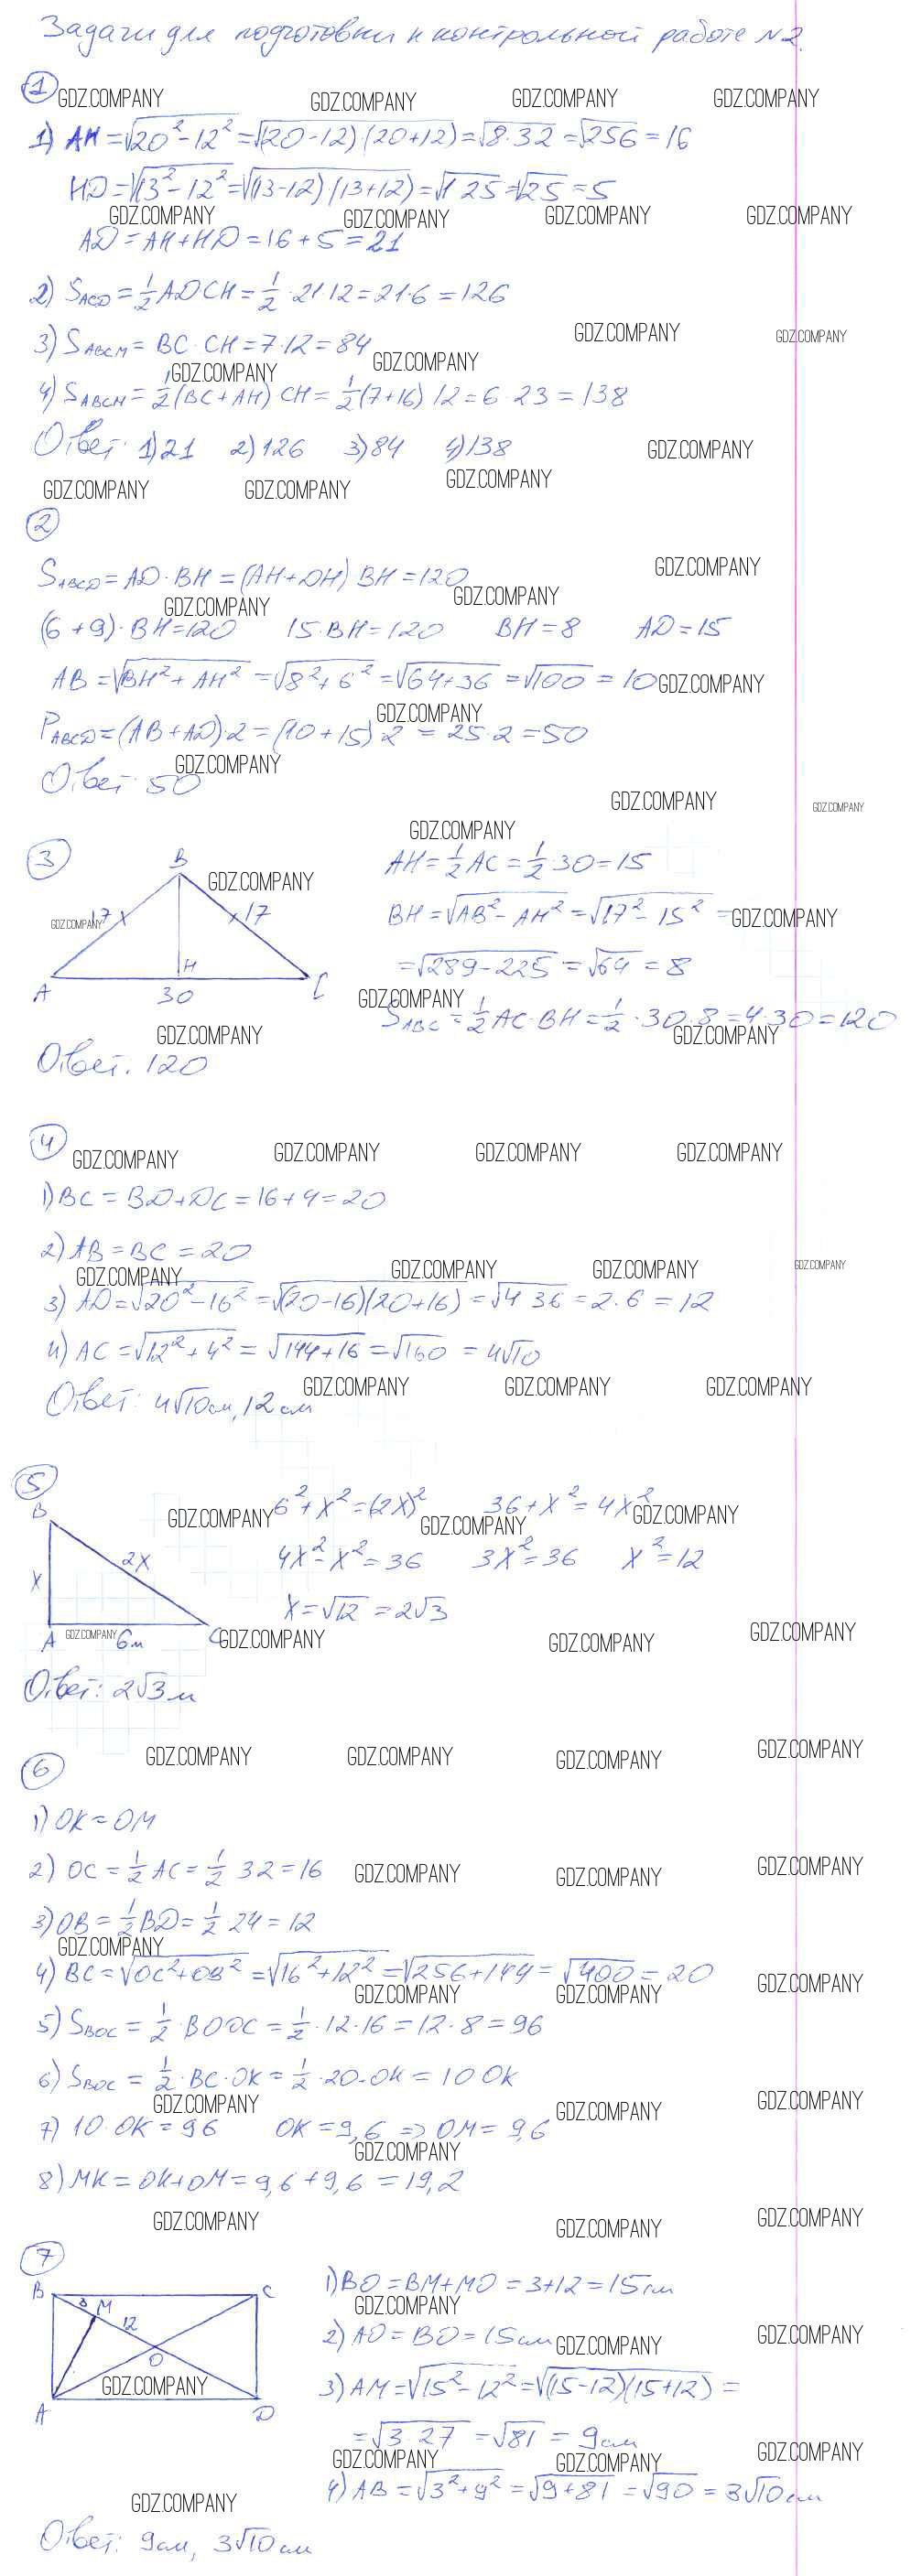 Задачи для подготовки к контрольной работе №2.
1
GDZ.COMPANY GDZ.COMPANY GDZ.COMPANY GDZ.COMPANY
1) AH = √20² - 12² = √(20-12)(20+12) = √8·32 = √256 = 16
HD = √13² - 12² = √(13-12)(13+12) = √1 25 = √25 = 5
GDZ.COMPANY GDZ.COMPANY GDZ.COMPANY GDZ.COMPANY
AD = AH + HD = 16 + 5 = 21
2) S_ACD = 1/2 AD CH = 1/2 · 21 12 = 21·6 = 126
GDZ.COMPANY GDZ.COMPANY
3) S_ABCM = BC · CH = 7·12 = 84
GDZ.COMPANY GDZ.COMPANY
4) S_ABCH = 1/2 (BC + AH) · CH = 1/2 (7+16) 12 = 6 · 23 = 138
Ответ: 1) 21 2) 126 3) 84 4) 138
GDZ.COMPANY
GDZ.COMPANY GDZ.COMPANY GDZ.COMPANY
2
S_ABCD = AD · BH = (AH + DH) BH = 120
GDZ.COMPANY
GDZ.COMPANY GDZ.COMPANY
(6 + 9) · BH = 120 15 · BH = 120 BH = 8 AD = 15
AB = √BH² + AH² = √8² + 6² = √64 + 36 = √100 = 10
GDZ.COMPANY
GDZ.COMPANY
P_ABCD = (AB + AD)·2 = (10 + 15) 2 = 25·2 = 50
GDZ.COMPANY
Ответ: 50
GDZ.COMPANY GDZ.COMPANY
GDZ.COMPANY
3
B
AH = 1/2 AC = 1/2 · 30 = 15
GDZ.COMPANY
17 17
GDZ.COMPANY
BH = √AB² - AH² = √17² - 15² =
GDZ.COMPANY
= √289 - 225 = √64 = 8
A H C
30
GDZ.COMPANY
S_ABC = 1/2 AC · BH = 1/2 · 30·8 = 4·30 = 120
GDZ.COMPANY GDZ.COMPANY
Ответ: 120
4
GDZ.COMPANY GDZ.COMPANY GDZ.COMPANY GDZ.COMPANY
1) BC = BD + DC = 16 + 4 = 20
2) AB = BC = 20
GDZ.COMPANY GDZ.COMPANY GDZ.COMPANY GDZ.COMPANY
3) AD = √20² - 16² = √(20-16)(20+16) = √4 36 = 2·6 = 12
4) AC = √12² + 4² = √144 + 16 = √160 = 4√10
GDZ.COMPANY GDZ.COMPANY GDZ.COMPANY
Ответ: 4√10 см, 12 см
5
B
6² + x² = (2x)² 36 + x² = 4x²
GDZ.COMPANY GDZ.COMPANY GDZ.COMPANY
x 2x
4x² - x² = 36 3x² = 36 x² = 12
x = √12 = 2√3
A 6м C
GDZ.COMPANY GDZ.COMPANY GDZ.COMPANY GDZ.COMPANY
Ответ: 2√3 м
6
GDZ.COMPANY GDZ.COMPANY GDZ.COMPANY GDZ.COMPANY
1) OK = OM
2) OC = 1/2 AC = 1/2 32 = 16
GDZ.COMPANY GDZ.COMPANY GDZ.COMPANY
3) OB = 1/2 BD = 1/2 24 = 12
GDZ.COMPANY
4) BC = √OC² + OB² = √16² + 12² = √256 + 144 = √400 = 20
GDZ.COMPANY GDZ.COMPANY GDZ.COMPANY
5) S_BOC = 1/2 · BO OC = 1/2 · 12·16 = 12·8 = 96
6) S_BOC = 1/2 · BC · OK = 1/2 · 20·OK = 10 OK
GDZ.COMPANY GDZ.COMPANY GDZ.COMPANY
7) 10 · OK = 96 OK = 9,6 ⇒ OM = 9,6
GDZ.COMPANY
8) MK = OK + OM = 9,6 + 9,6 = 19,2
GDZ.COMPANY GDZ.COMPANY GDZ.COMPANY
7
B C
3 M 12
O
A D
GDZ.COMPANY
1) BO = BM + MO = 3 + 12 = 15 см
GDZ.COMPANY
2) AO = BO = 15 см
GDZ.COMPANY GDZ.COMPANY
3) AM = √15² - 12² = √(15-12)(15+12) =
= √3 27 = √81 = 9 см
GDZ.COMPANY GDZ.COMPANY GDZ.COMPANY
4) AB = √3² + 9² = √9 + 81 = √90 = 3√10 см
GDZ.COMPANY
Ответ: 9 см, 3√10 см